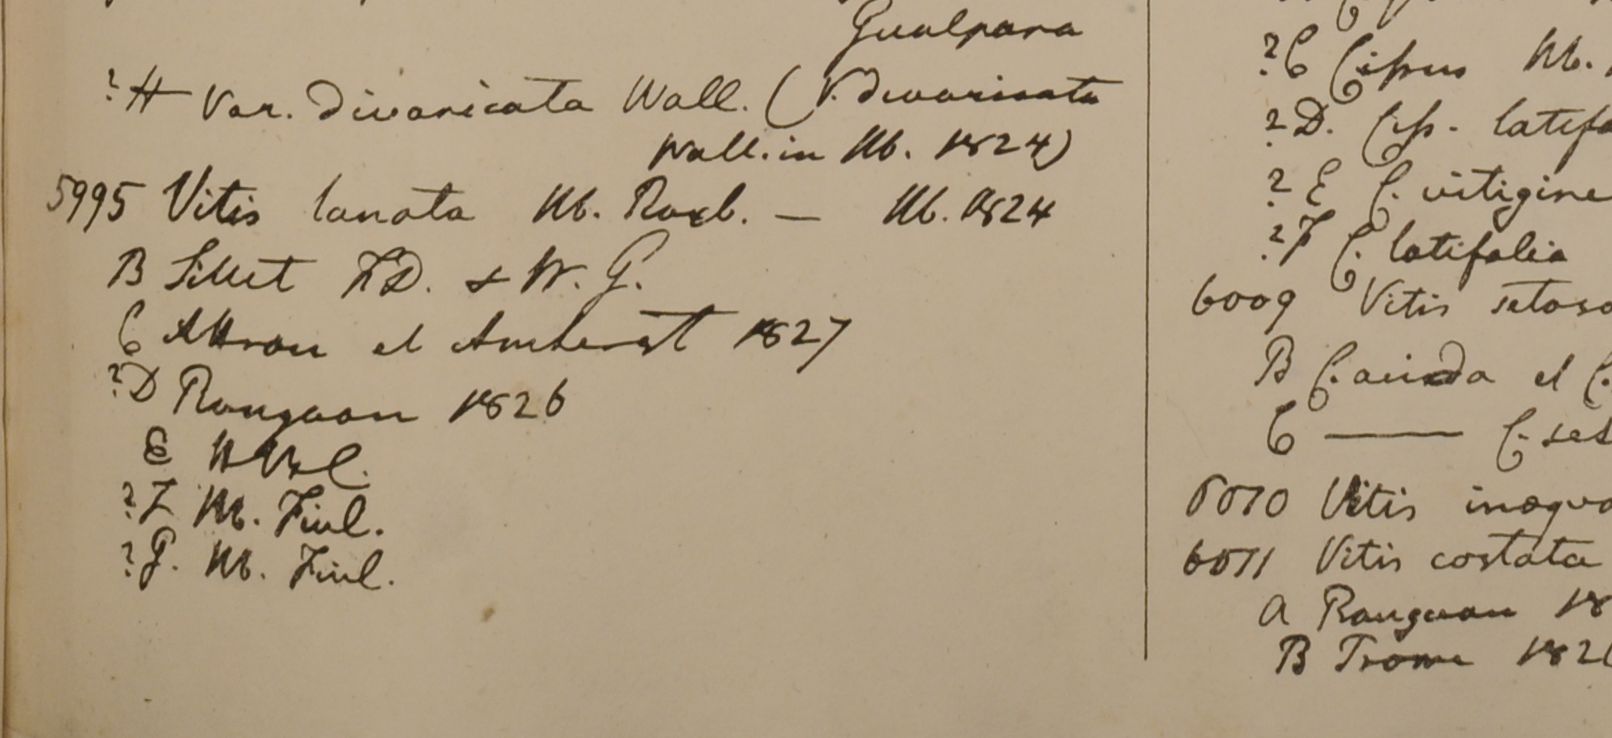 Gualpara
?H Var. Divaricata Wall. (V. divaricata
Wall. in Hb. 1824)
5995 Vitis lanata Hb. Roxb. — Hb. 1824
B Sillet F.D. & W. G.
C Attran et Amherst 1827
?D Rangoon 1826
E HBC.
?F Hb. Finl.
?G. Hb. Finl.
?C Cissus Hb.
?D. Ciss. latifo
?E C. vitigine
?F C. latifolia
6009 Vitis setosa
B C. acida et C.
C —— C. set
6010 Vitis inæqua
6011 Vitis costata
A Rangoon 18
B Prome 182